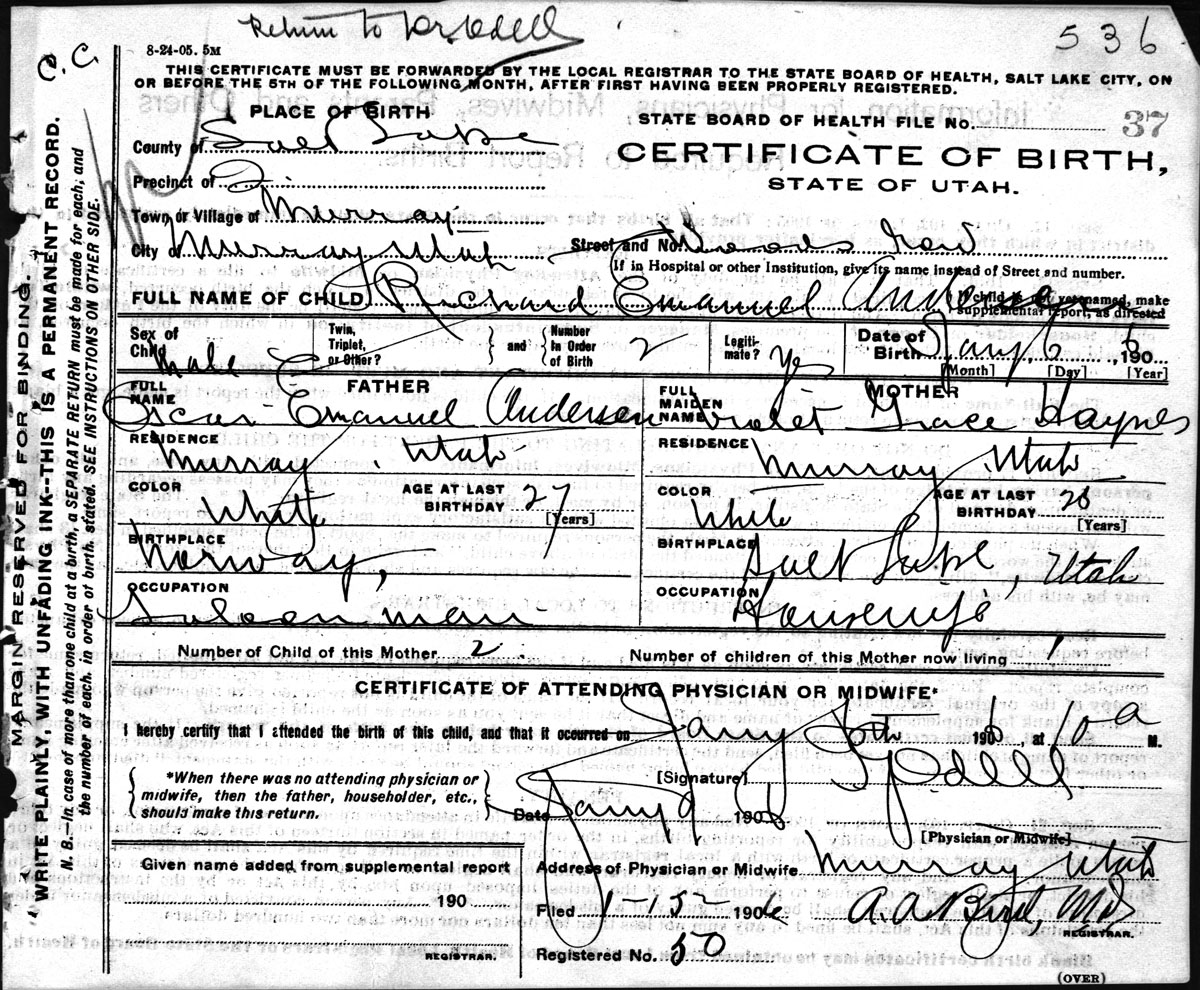 Return to Dr. Odell
536
C. C.
8-24-05. 5M
THIS CERTIFICATE MUST BE FORWARDED BY THE LOCAL REGISTRAR TO THE STATE BOARD OF HEALTH, SALT LAKE CITY, ON
OR BEFORE THE 5TH OF THE FOLLOWING MONTH, AFTER FIRST HAVING BEEN PROPERLY REGISTERED.
PLACE OF BIRTH
STATE BOARD OF HEALTH FILE No. 37
County of Salt Lake
CERTIFICATE OF BIRTH,
STATE OF UTAH.
Precinct of
Town, or Village of Murray
City of Murray Utah Street and No.
If in Hospital or other Institution, give its name instead of Street and number.
FULL NAME OF CHILD Richard Emanuel Andersen
If child is not yet named, make
supplemental report, as directed
Sex of Child Male
Twin, Triplet, or Other?
and
Number In Order of Birth 2
Legitimate? Yes
Date of Birth Jany 6 1906
[Month] [Day] [Year]
FATHER
FULL NAME Oscar Emanuel Andersen
MOTHER
FULL MAIDEN NAME Violet Grace Haynes
RESIDENCE Murray, Utah
RESIDENCE Murray, Utah
COLOR White
AGE AT LAST BIRTHDAY 27
[Years]
COLOR White
AGE AT LAST BIRTHDAY
[Years]
BIRTHPLACE Norway,
BIRTHPLACE Salt Lake, Utah
OCCUPATION Saloon man
OCCUPATION Housewife
Number of Child of this Mother 2
Number of children of this Mother now living
CERTIFICATE OF ATTENDING PHYSICIAN OR MIDWIFE*
I hereby certify that I attended the birth of this child, and that it occurred on Jany 6th 190 at a M.
*When there was no attending physician or
midwife, then the father, householder, etc.,
should make this return.
[Signature] Odell
Date Jany 190
[Physician or Midwife]
Given name added from supplemental report
190
REGISTRAR.
Address of Physician or Midwife Murray Utah
Filed 1-15- 1906 A. A. Bird, MD
REGISTRAR.
Registered No. 50
(OVER)
MARGIN RESERVED FOR BINDING.
WRITE PLAINLY, WITH UNFADING INK--THIS IS A PERMANENT RECORD.
N. B.—In case of more than one child at a birth, a SEPARATE RETURN must be made for each, and
the number of each, in order of birth, stated. SEE INSTRUCTIONS ON OTHER SIDE.